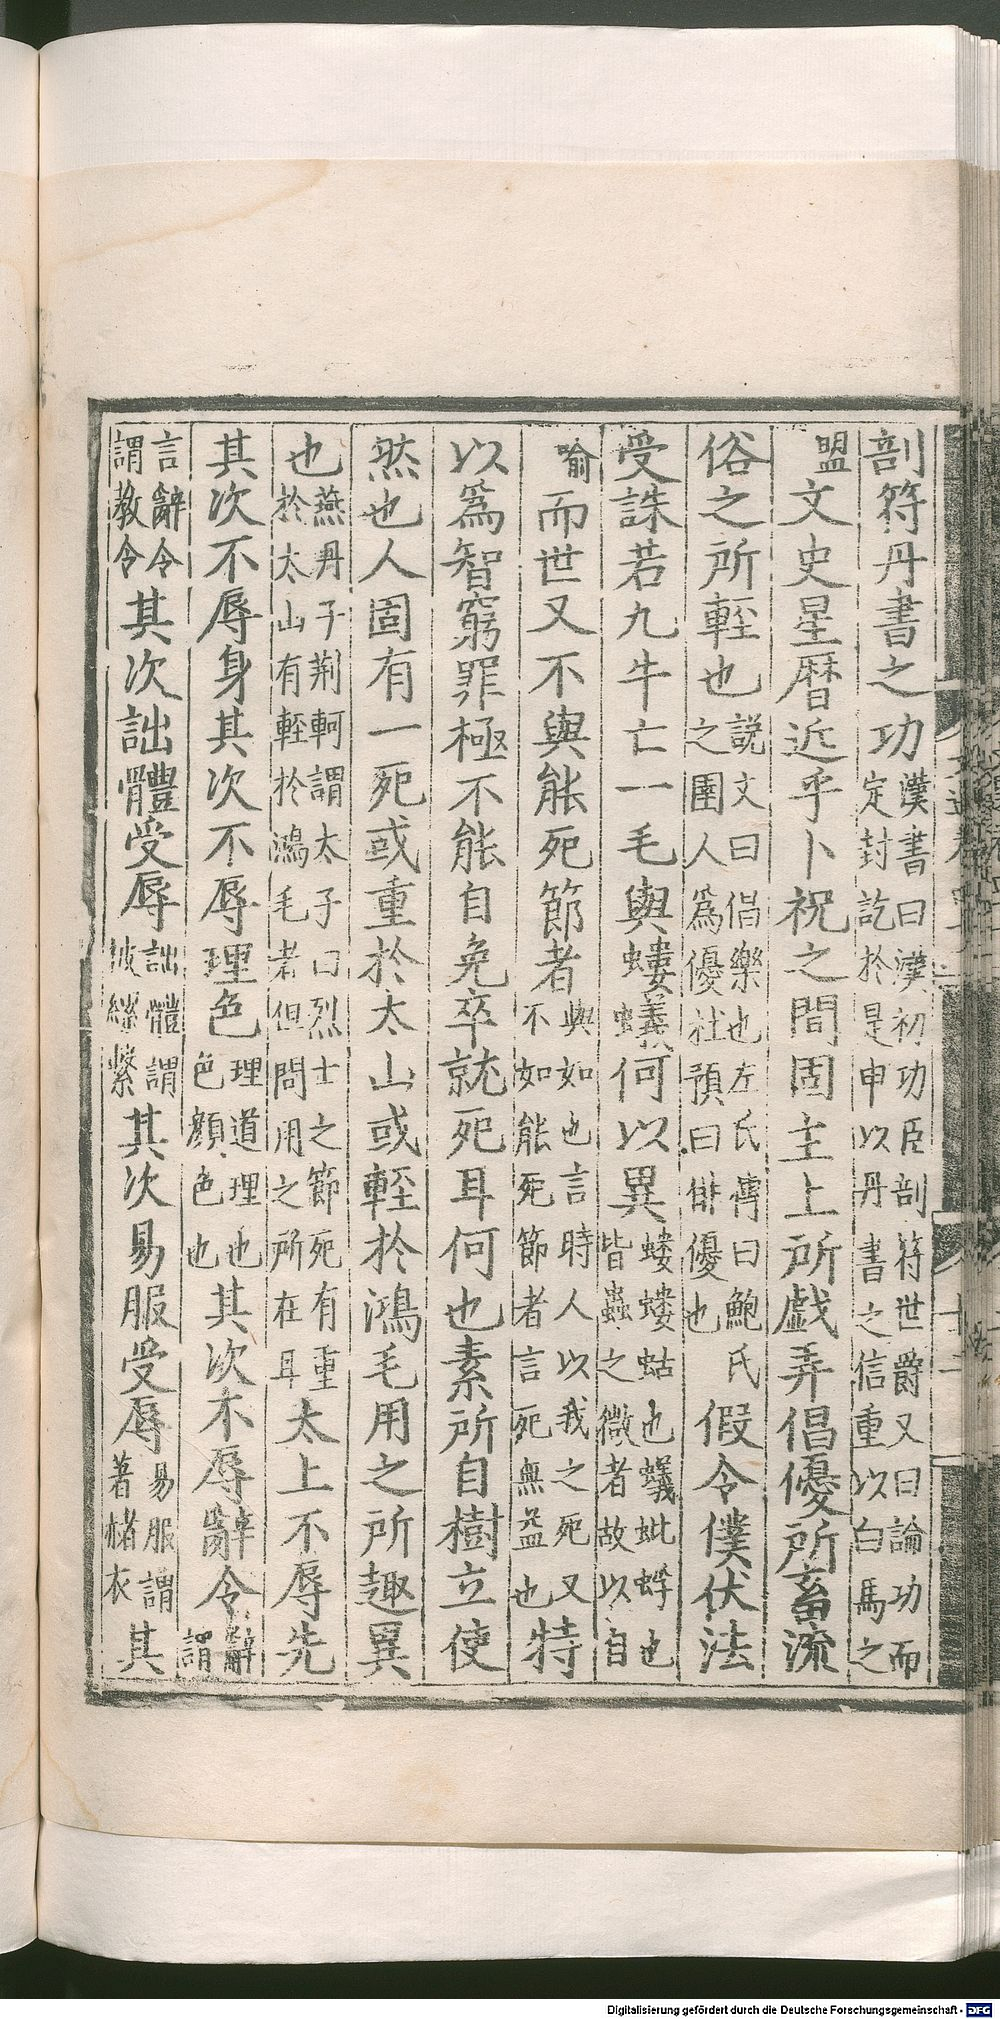 剖符丹書之功漢書曰漢初功臣剖符世爵又曰論功而定封訖於是申以丹書之信重以白馬之
盟文史星暦近乎卜祝之間固主上所戯弄倡優所畜流
俗之所輊也説文曰倡樂也左氏傳曰鮑氏之圉人爲優杜預曰俳優也假令僕伏法
受誅若九牛亡一毛與螻蟻何以異螻螻蛄也蟻蚍蜉也皆蟲之微者故以自
喻而世又不與能死節者與如也言時人以我之死又不如能死節者言死無益也特
以爲智窮罪極不能自免卒就死耳何也素所自樹立使
然也人固有一死或重於太山或輊於鴻毛用之所趣異
也燕丹子荊軻謂太子曰烈士之節死有重於太山有輊於鴻毛者但問用之所在耳太上不辱先
其次不辱身其次不辱理色理道理也色顔色也其次不辱辭令辭謂
言辭令謂教令其次詘體受辱詘體謂被縲繫其次易服受辱易服謂著赭衣其
Digitalisierung gefördert durch die Deutsche Forschungsgemeinschaft - DFG